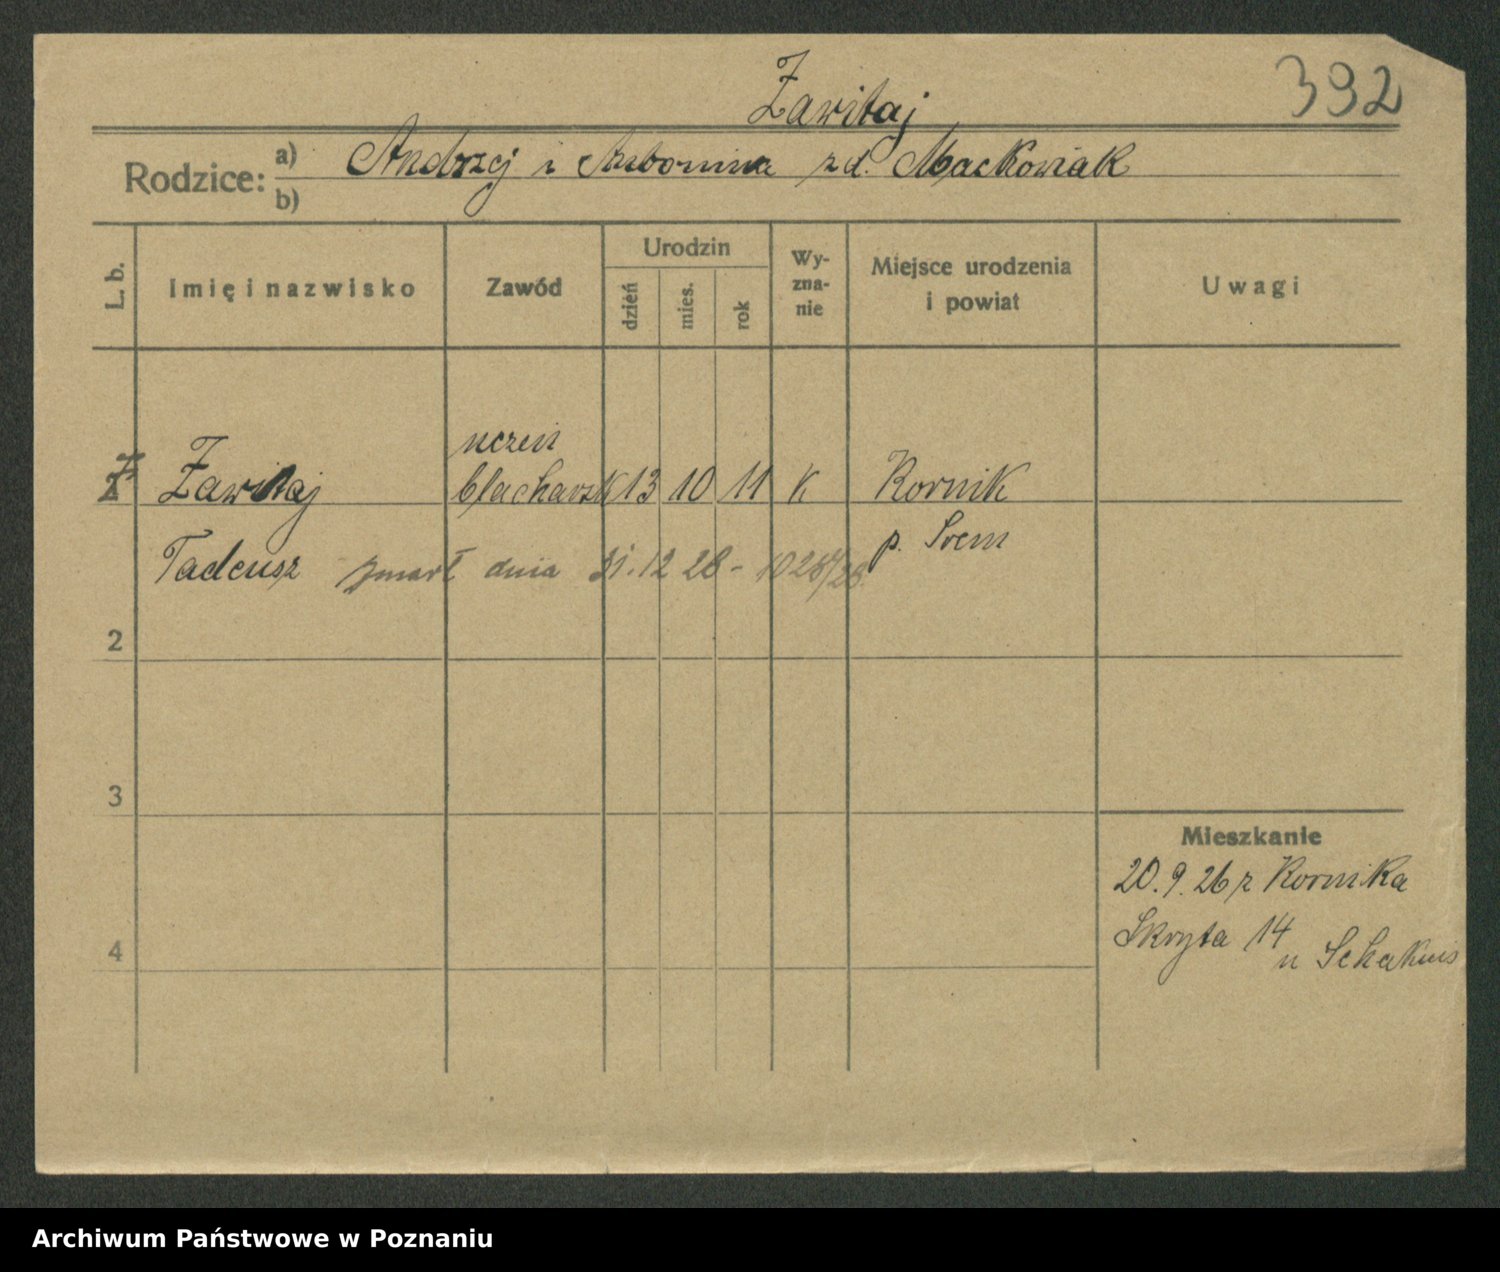 392
Zawitaj
Rodzice:
a) Andrzej i Antonina zd. Mackowiak
b)
L. b.
Imię i nazwisko
Zawód
Urodzin
dzień
mies.
rok
Wy-
zna-
nie
Miejsce urodzenia
i powiat
Uwagi
uczeń
Zawitaj blacharsk 13 10 11 K Kornik
p. Srem
Tadeusz zmarł dnia 31.12 28 -
2
3
4
Mieszkanie
20.9.26 z Kornika
Skryta 14
u
Archiwum Państwowe w Poznaniu